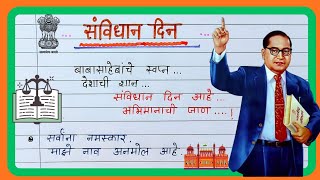 संविधान दिन
बाबासाहेबांचे स्वप्न ...
देशाची शान ...
संविधान दिन आहे ...
अभिमानाची जाण ....!
सर्वांना नमस्कार.
माझे नाव अनमोल आहे.